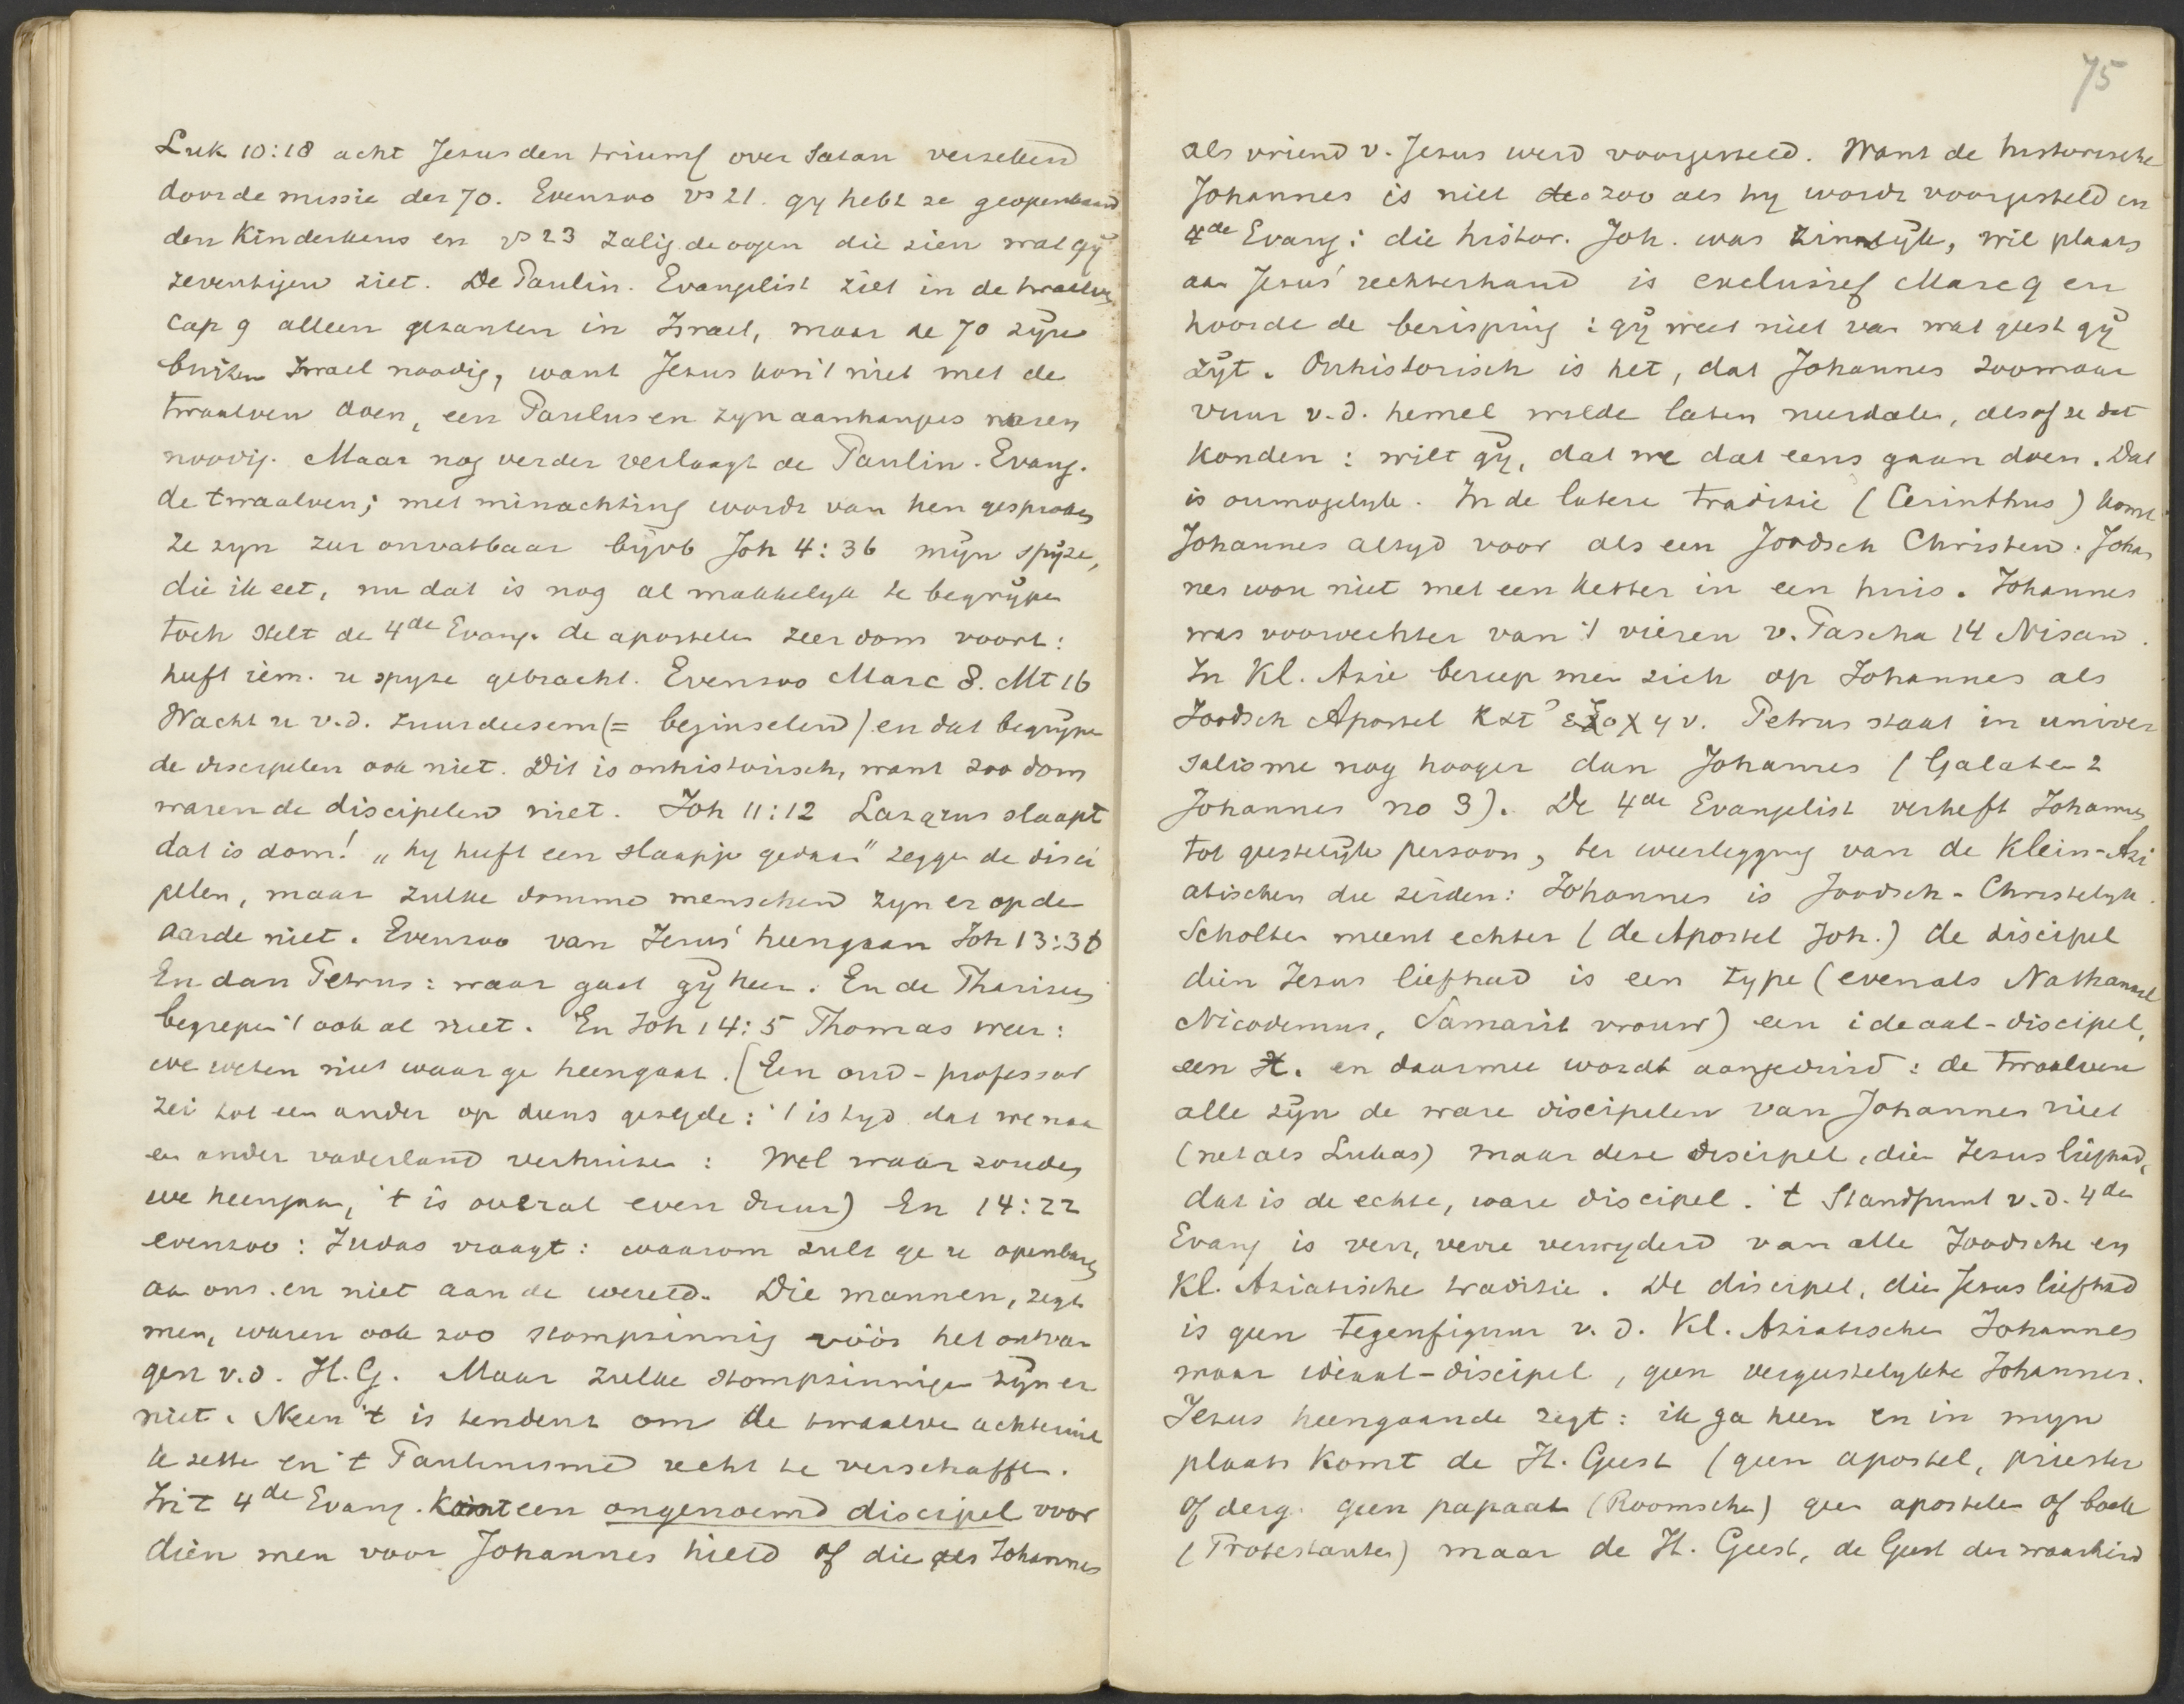 Luk 10:18 acht Jesus den triumf over Satan verzekerd
door de missie der 70. Evenzoo vs 21. gy hebt ze geopenbaard
den Kinderkens en vs 23 zalig de oogen die zien wat gÿ
zeventigen ziet. De Paulin. Evangelist ziet in de twaalven
cap 9 alleen gezanten in Israel, maar de 70 zÿn
buiten Israel noodig, want Jesus kon 't niet met de
twaalven doen, een Paulus en zyn aanhangers waren
noodig. Maar nog verder verlaagt de Paulin. Evang.
de twaalven; met minachting wordt van hen gesproken
ze zyn zeer onvatbaar bÿvb Joh 4:36 mÿn spÿze,
die ik eet, nu dat is nog al makkelyk te begrÿpen
toch stelt de 4de Evang. de apostelen zeer dom voor:
heeft iem. u spyze gebracht. Evenzoo Marc 8. Mt 16
Wacht u v.d. zuurdeesem (= beginselen) en dat begrÿpen
de discipelen ook niet. Dit is onhistorisch, want zoo dom
waren de discipelen niet. Joh 11:12 Lazarus slaapt
dat is dom! "hy heeft een slaapje gedaan" zeggen de disci
pelen, maar zulke domme menschen zyn er op de
aarde niet. Evenzoo van Jesus' heengaan Joh 13:36
En dan Petrus: waar gaat gÿ heen. En de Pharizeen
begrepen 't ook al niet. En Joh 14:5 Thomas weer:
we weten niet waar ge heengaat. (Een oud-professor
zei tot een ander op diens gezegde: 't is tyd dat we naar
een ander vaderland verhuizen: Wel waar zouden
we heengaan, 't is overal even duur) En 14:22
evenzoo: Judas vraagt: waarom zult ge u openbaren
aan ons en niet aan de wereld. Die mannen, zegt
men, waren ook zoo stompzinnig vóór het ontvan
gen v.d. H.G. Maar zulke stompzinnigen zÿn er
niet. Neen 't is tendenz om de twaalven achteruit
te zetten en 't Paulinisme recht te verschaffen.
In 't 4de Evang. komt een ongenoemd discipel voor
dien men voor Johannes hield of die als Johannes
75
als vriend v. Jesus werd voorgesteld. Want de historische
Johannes is niet zoo als hy wordt voorgesteld in
4de Evang: die histor. Joh. was zinnelÿk, wil plaats
aan Jesus' rechterhand is exclusief Marc 9 en
hoorde de berisping: gÿ weet niet van wat geest gÿ
zÿt. Onhistorisch is het, dat Johannes zoomaar
vuur v.d. hemel wilde laten neerdalen, alsof ze dat
konden: wilt gÿ, dat we dat eens gaan doen. Dat
is onmogelyk. In de latere traditie (Cerinthus) komt
Johannes altyd voor als een Joodsch Christen. Johan
nes wou niet met een ketter in een huis. Johannes
was voorvechter van 't vieren v. Pascha 14 Nisan.
In Kl. Azie beriep men zich op Johannes als
Joodsch Apostel κατ' ἐξοχην. Petrus staat in univer
salisme nog hooger dan Johannes (Galaten 2
Johannes no 3). De 4de Evangelist verheft Johannes
tot geestelÿk persoon, ter weerlegging van de Klein-Azi
atischen die zeiden: Johannes is Joodsch-Christelyk.
Scholten meent echter (de Apostel Joh.) de discipel
dien Jesus liefhad is een type (evenals Nathanael
Nicodemus, Samarit vrouw) een ideaal-discipel,
een X. en daarmee wordt aangeduid: de twaalven
alle zÿn de ware discipelen van Johannes niet
(net als Lukas) maar deze discipel, dien Jesus liefhad,
dat is de echte, ware discipel. 't Standpunt v.d. 4de
Evang is verre, verre verwyderd van alle Joodsche en
Kl. Aziatische traditie. De discipel, dien Jesus liefhad
is geen tegenfiguur v.d. Kl. Aziatischen Johannes
maar ideaal-discipel, geen vergeestelykte Johannes.
Jesus heengaande zegt: ik ga heen en in myn
plaats komt de H. Geest (geen apostel, priester
of derg. geen papaat (Roomschen) geen apostelen of boek
(Protestanten) maar de H. Geest, de Geest der waarheid